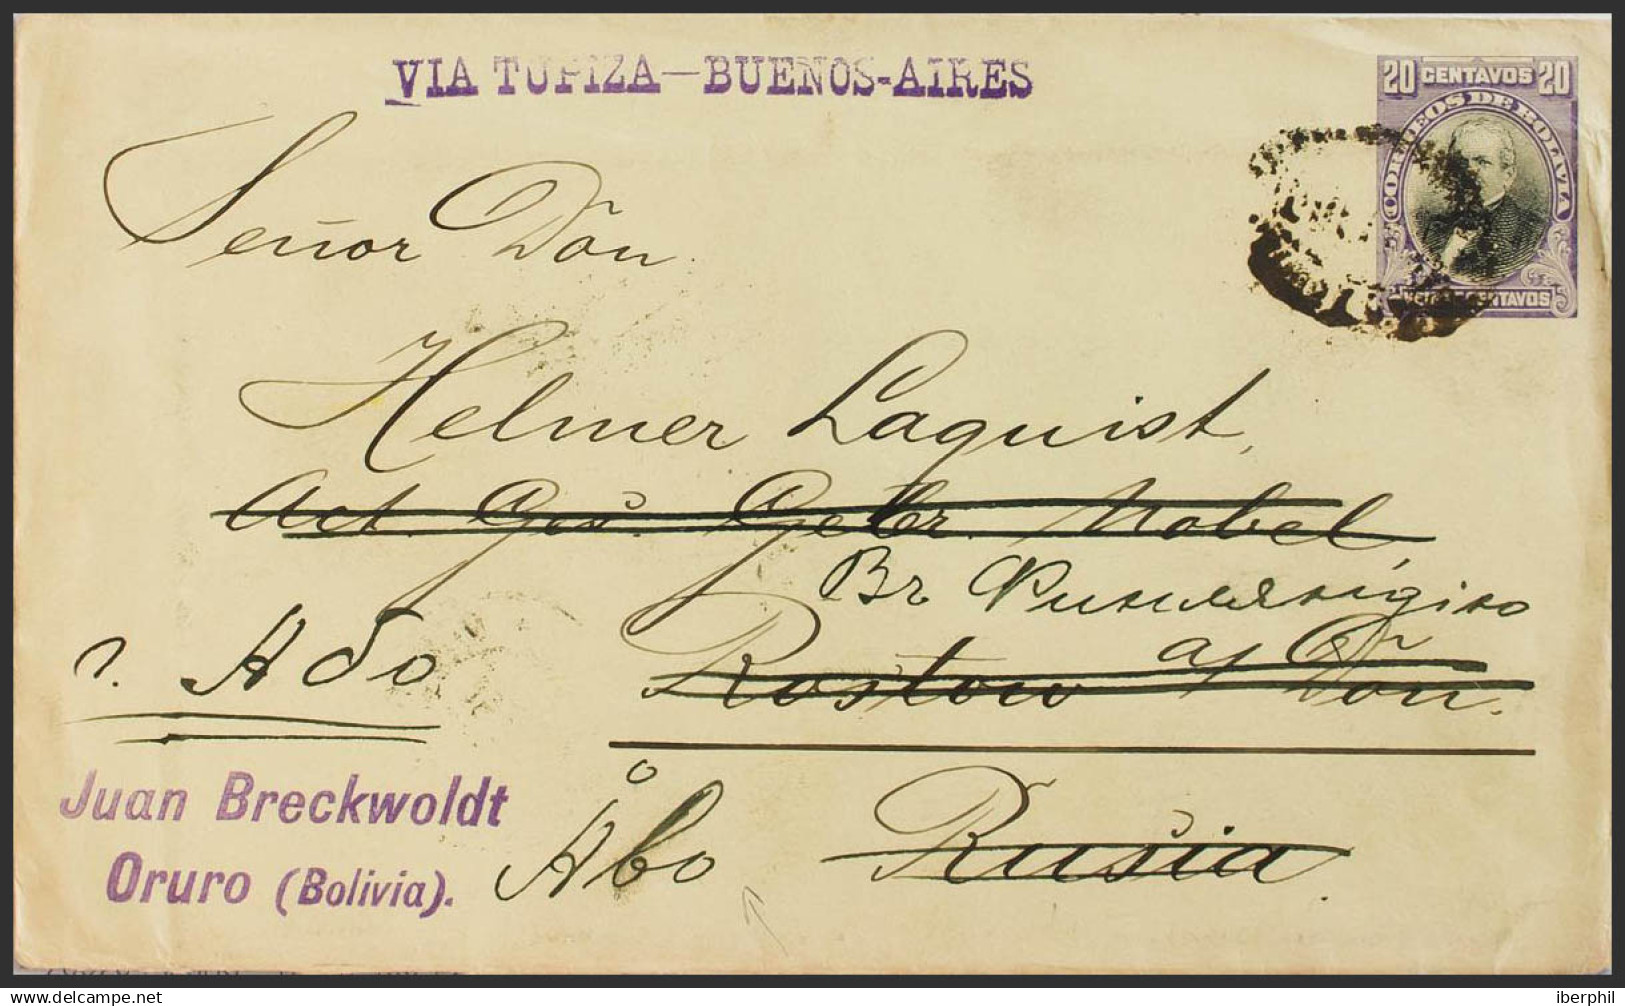 VIA TUPIZA—BUENOS-AIRES
20 CENTAVOS 20
CORREOS DE BOLIVIA
VEINTE CENTAVOS
Señor Don
Helmer Laquist,
Act. Ges. Gebr. Nobel,
Br
г. Або
Rostow a/ Don.
Juan Breckwoldt
Oruro (Bolivia).
Åbo
Rusia.
iberphil
delcampe.net